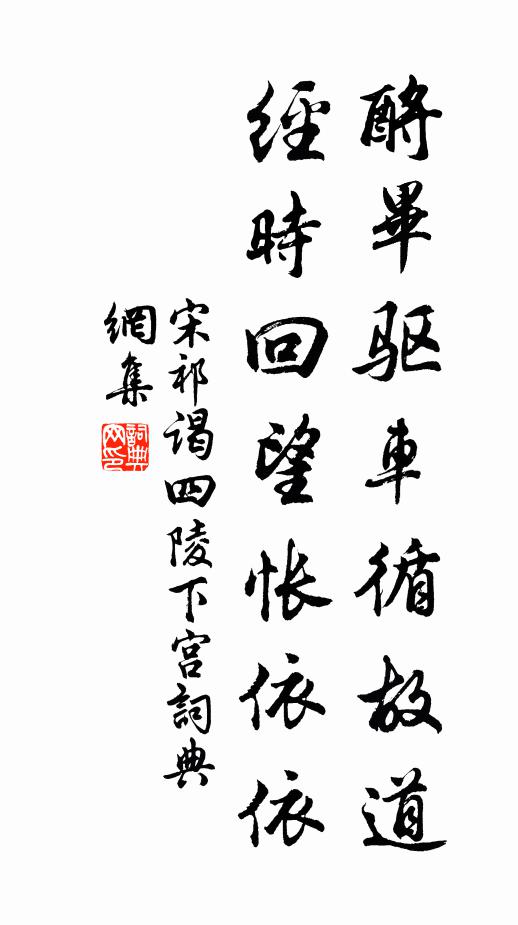 酹畢驱車循故道
經時回望悵依依
宋祁謁四陵下宫詞典
網集
詞典
网印